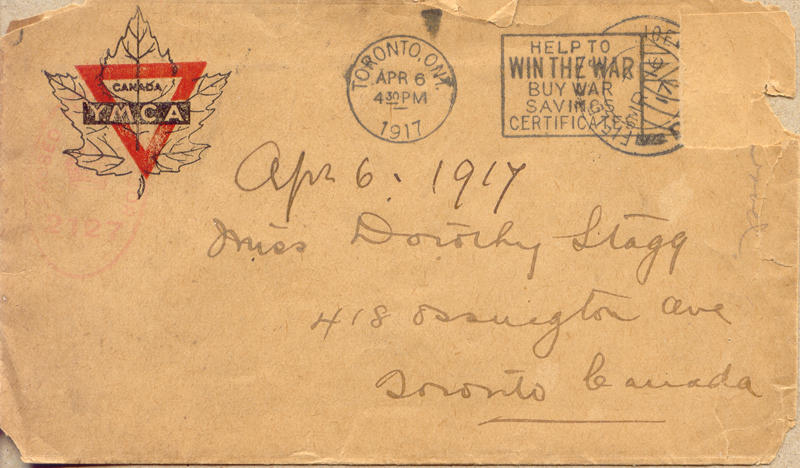 CANADA
YMCA
TORONTO, ONT.
APR 6
4 30 PM
1917
HELP TO
WIN THE WAR
BUY WAR
SAVINGS
CERTIFICATES
Apr 6. 1917
Miss Dorothy Stagg
418 Ossington Ave
Toronto Canada
2127